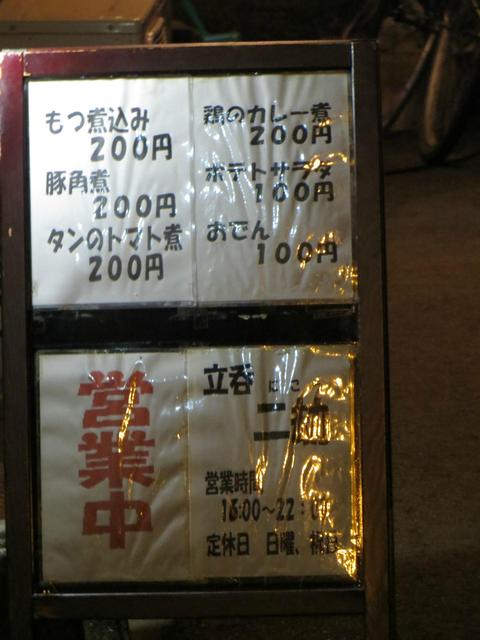 もつ煮込み
200円
豚角煮
200円
タンのトマト煮
200円
鶏のカレー煮
200円
ポテトサラダ
100円
おでん
100円
営業中
立呑
にこ
二
営業時間
16:00～22:00
定休日 日曜、祝日